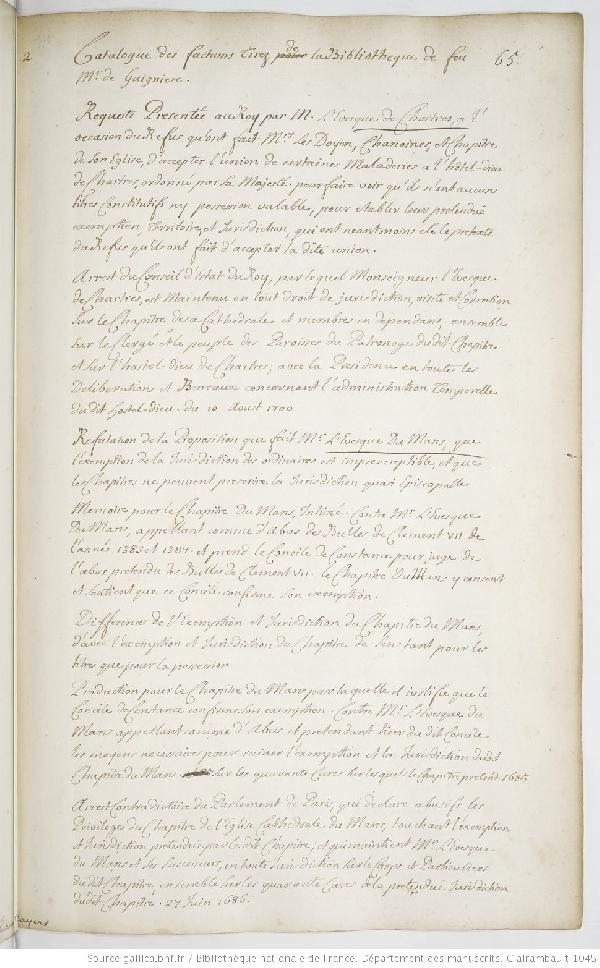 2
Catalogue des factums Tirez de la Bibliotheque de feu 65.
Mr. de Gaigniere.
Requeste Presentée au Roy par M. L'Evesque de Chartres, a l'
occasion du Refus qu'ont fait Mrs. les Doyen, Chanoines, et Chapitre
de son Eglise, d'accepter l'union de certaines Maladeries a l'hôtel-dieu
de Chartres, ordonnée par sa Majesté. pour faire voir qu'ils n'ont aucuns
titres Constitutifs ny possession valable, pour etablir leur pretendue
exemption, Territoire, et Jurisdiction, qui ont neantmoins esté le pretexte
du Refus qu'ils ont fait d'accepter la dite union.
Arrest du Conseil d'Estat du Roy, par lequel Monseigneur l'Evesque
de Chartres, est Maintenu en tout droit de jurisdiction, visite et Correction
sur le Chapitre de sa Cathedrale et membres en dependans, ensemble
sur le Clergé et le peuple des Paroisses du Patronage dudit Chapitre
et sur l'hostel-dieu de Chartres; avec la Presidence en toutes les
Deliberations et Bureaux concernant l'administration Temporelle
dudit Hostel-Dieu. du 10 Aoust 1700
Refutation de la Proposition que fait Mr. L'Evesque Du Mans, que
l'exemption de la Jurisdiction des ordinaires est imprescriptible, et que
les Chapitres ne peuvent prescrire la Jurisdiction quasi Episcopalle
Memoires pour le Chapitre Du Mans, Intimé. Contre Mr. L'Evesque
Du Mans, appellant comme d'Abus des Bulles de Clement VII de
l'année 1385 et 1387. et prend le Concile de Constance pour juge de
l'abus pretendu des Bulles de Clement VII. le Chapitre Du Mans y consent
et soutient que ce Concile confirme son exemption.
Difference de l'exemption et Jurisdiction du Chapitre du Mans,
d'avec l'exemption et Jurisdiction du Chapitre de Sens tant pour les
titre que pour la possession
Production pour le Chapitre du Mans par laquelle il justifie que le
Concile de Constance confirme son exemption. Contre Mr. L'Evesque du
Mans appellant comme d'Abus et pretendant tirer du dit Concile
les moyens necessaires pour ruiner l'exemption et la Jurisdiction dudit
Chapitre du Mans sur les quarante Cures sur lesquels le Chapitre pretend. 1685
Arrest Contradictoire du Parlement de Paris, qui declare abusifs les
Privileges du Chapitre de l'Eglise Cathedrale du Mans, touchant l'exemption
et Jurisdiction pretendue par le dit Chapitre, et qui maintient Mr. l'Evesque
du Mans et ses Successeurs, en toute Jurisdiction sur le Corps et Particuliers
du dit Chapitre, ensemble sur les quarante Cures de la pretendue Jurisdiction
dudit Chapitre. 27 Juin 1686.
Source gallica.bnf.fr / Bibliothèque nationale de France. Département des manuscrits. Clairambault 1045